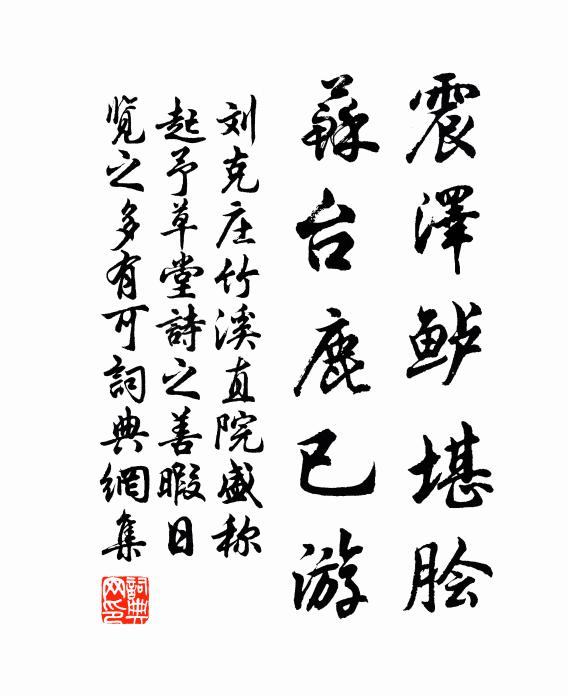 震澤鲈堪脍
蘇台鹿已游
刘克庄竹溪直院盛称
起予草堂詩之善暇日
览之多有可詞典網集
詞典网印